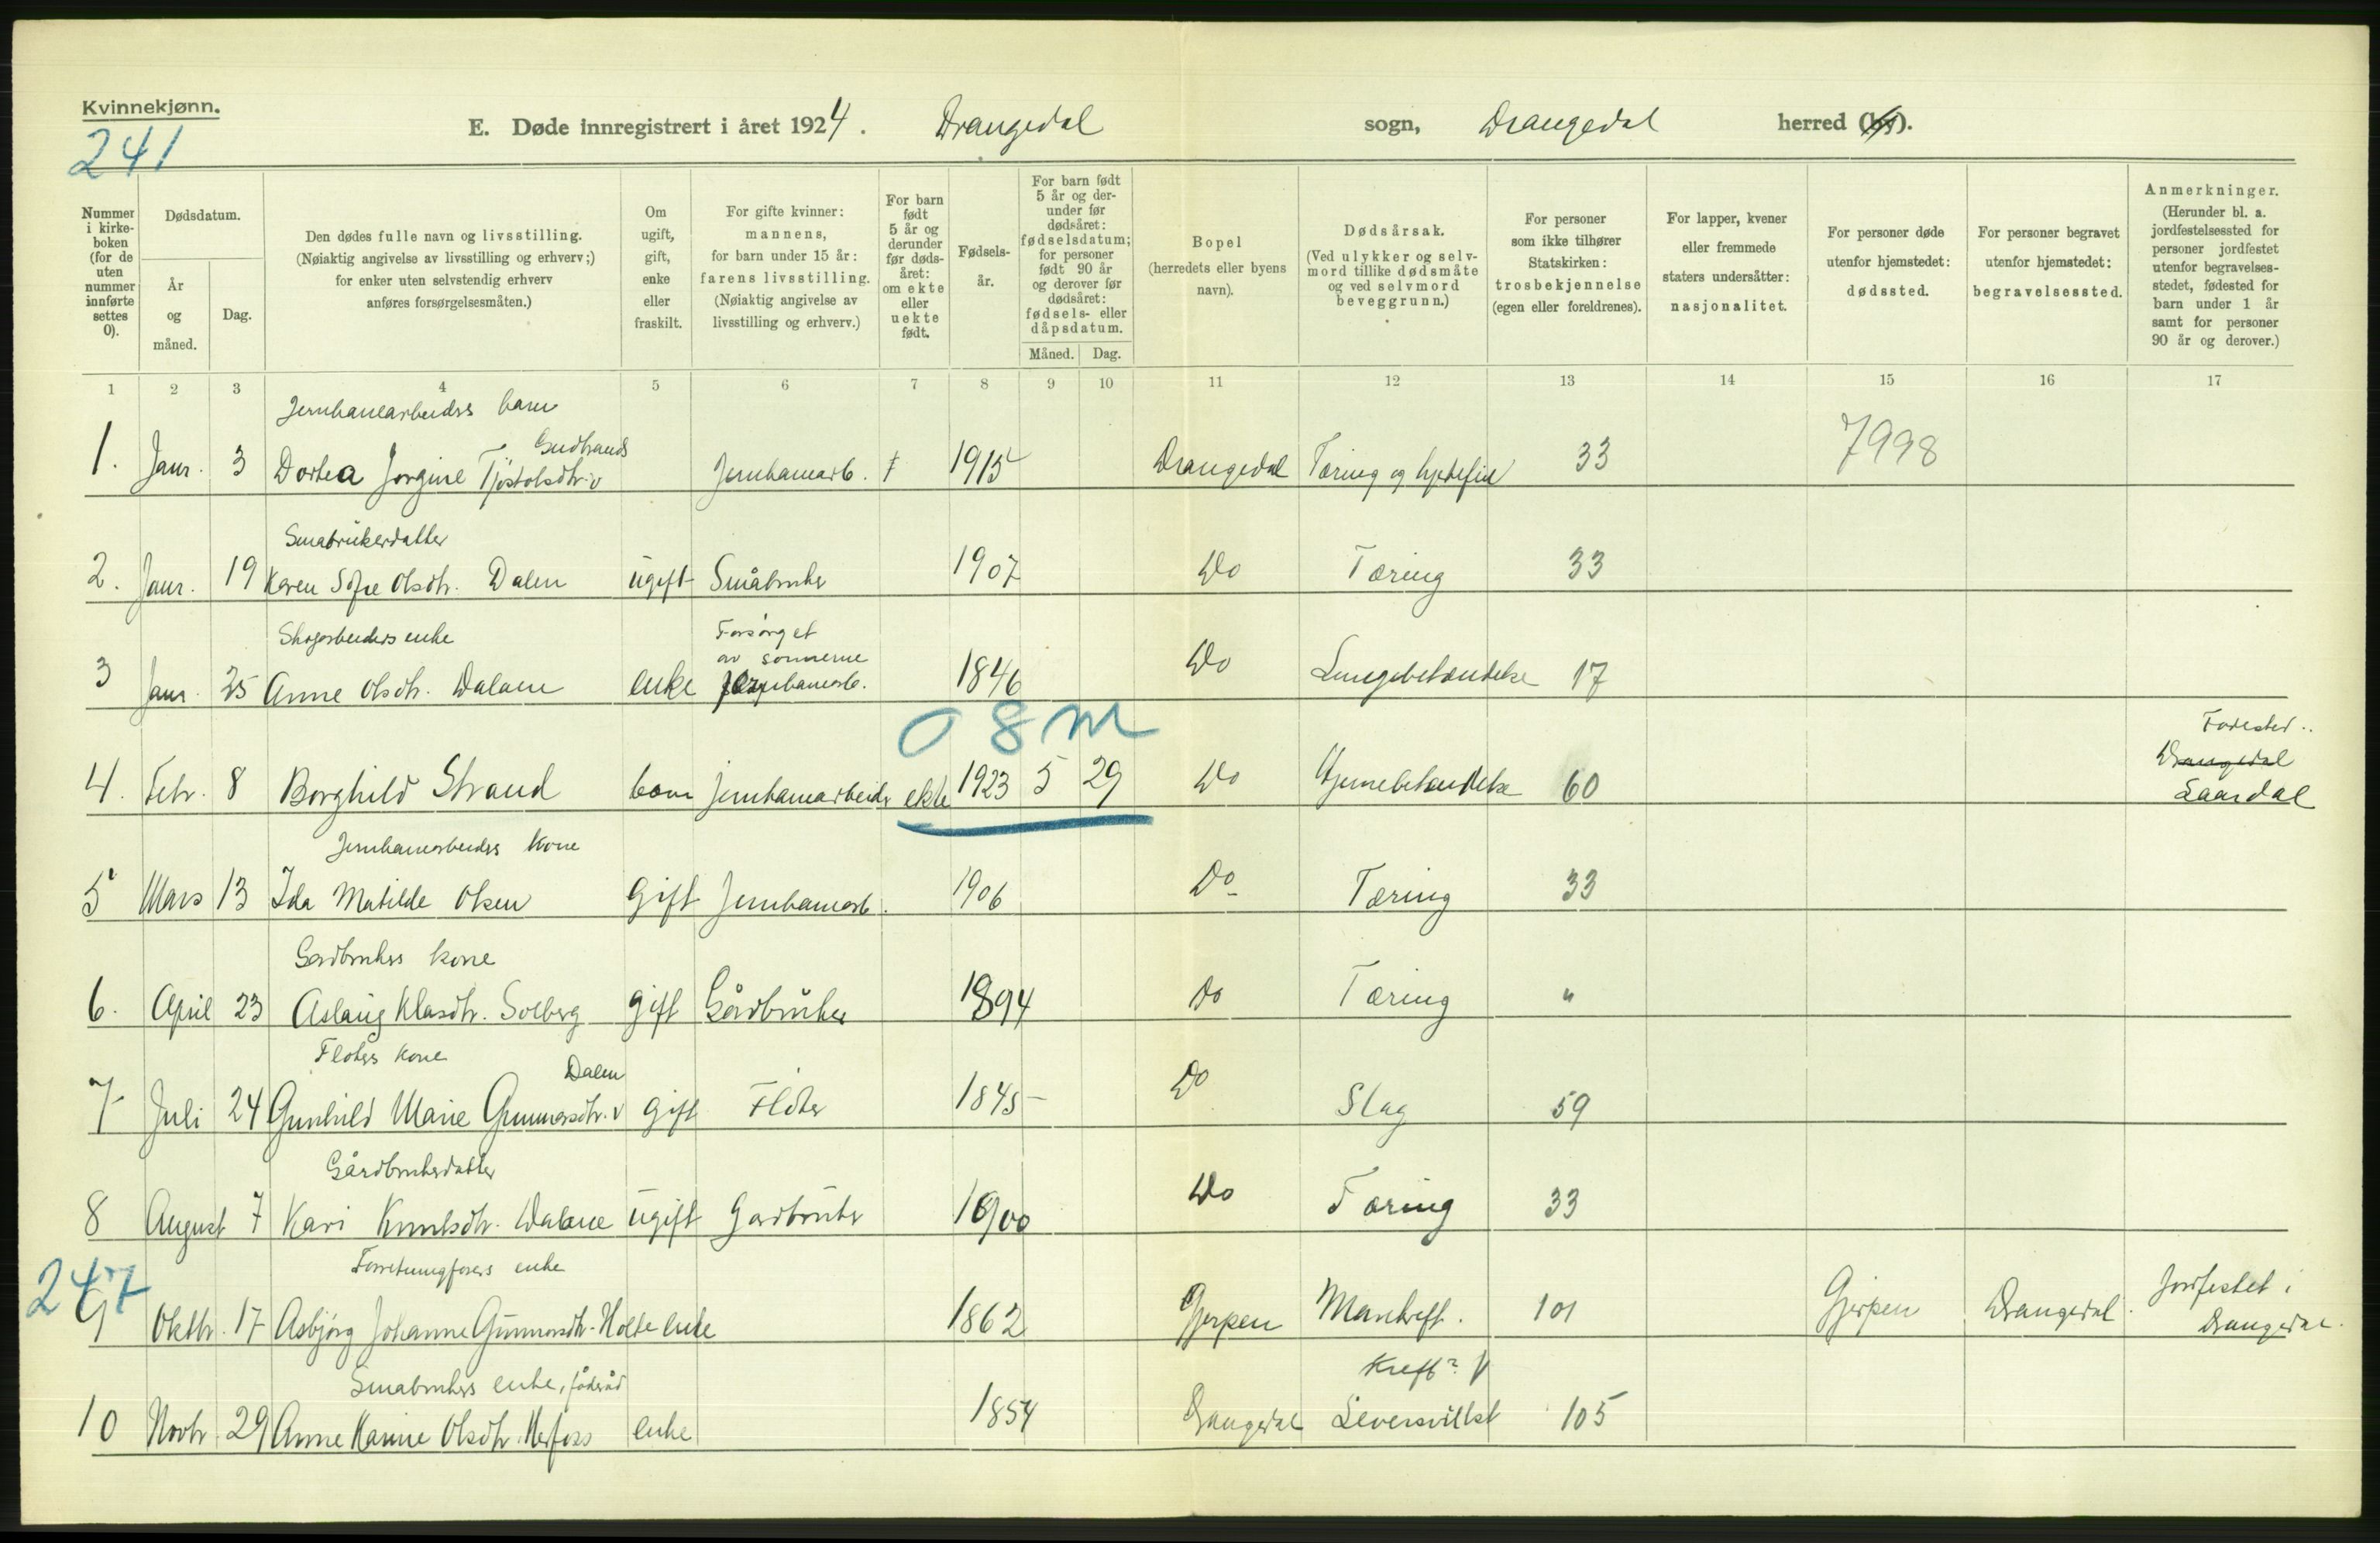 Kvinnekjønn.
241
E. Døde innregistrert i året 1924. Drangedal sogn, Drangedal herred (by).
Nummer i kirkeboken (for de uten nummer innførte settes 0).
Dødsdatum.
År og måned.
Dag.
Den dødes fulle navn og livsstilling.
(Nøiaktig angivelse av livsstilling og erhverv;)
for enker uten selvstendig erhverv
anføres forsørgelsesmåten.)
Om ugift, gift, enke eller fraskilt.
For gifte kvinner: mannens, for barn under 15 år: farens livsstilling. (Nøiaktig angivelse av livsstilling og erhverv.)
For barn født 5 år og derunder før dødsåret: om ekte eller uekte født.
Fødselsår.
For barn født 5 år og derunder før dødsåret: fødselsdatum; for personer født 90 år og derover før dødsåret: fødsels- eller dåpsdatum.
Måned. Dag.
Bopel (herredets eller byens navn).
Dødsårsak. (Ved ulykker og selvmord tillike dødsmåte og ved selvmord beveggrunn.)
For personer som ikke tilhører Statskirken: trosbekjennelse (egen eller foreldrenes).
For lapper, kvener eller fremmede staters undersåtter: nasjonalitet.
For personer døde utenfor hjemstedet: dødssted.
For personer begravet utenfor hjemstedet: begravelsessted.
Anmerkninger. (Herunder bl. a. jordfestelsessted for personer jordfestet utenfor begravelsesstedet, fødested for barn under 1 år samt for personer 90 år og derover.)
1 2 3 4 5 6 7 8 9 10 11 12 13 14 15 16 17
Jernbanearbeiders barn
Gudbrands
1. Janr. 3 Dortea Jorgine Tjøstolsdtr. v Jernbanearb. 1915 Drangedal Tæring og hjertefeil 33 7998
Småbrukerdatter
2. Janr. 19 Karen Sofie Olsdtr. Dalen ugift Småbruker 1907 Do Tæring 33
Skogarbeiders enke Forsørget
av sønnerne
3 Janr. 25 Anne Olsdtr. Dalane enke Jernbanearb. 1846 Do Lungebetændelse 17
08m
Fødested..
Drangedal
4. Febr. 8 Borghild Strand barn jernbanearbeider ekte 1923 5 29 Do Hjernebetændelse 60 Laardal
Jernbanearbeiders kone
5 Mars 13 Ida Matilde Olsen Gift Jernbanearb. 1906 Do Tæring 33
Gardbrukers kone
6. April 23 Aslaug Klasdtr. Solberg gift Gårdbruker 1894 Do Tæring "
Fløters kone
Dalen
7 Juli 24 Gunhild Marie Gunnarsdtr. v gift Fløter 1845 Do Slag 59
Gårdbrukerdatter
8 August 7 Kari Knutsdtr. Dalane ugift Gardbruker 1900 Do Tæring 33
247
Forretningførers enke
9 Oktbr. 17 Asbjørg Johanne Gunnarsdtr. Holte enke 1862 Gjerpen Mavekreft. 101 Gjerpen Drangedal. Jordfestet i
Drangedal.
Småbrukers enke, föderåd Kreft? V
10 Novbr. 29 Anne Karine Olsdtr. Herfoss enke 1854 Drangedal Leversvullst 105